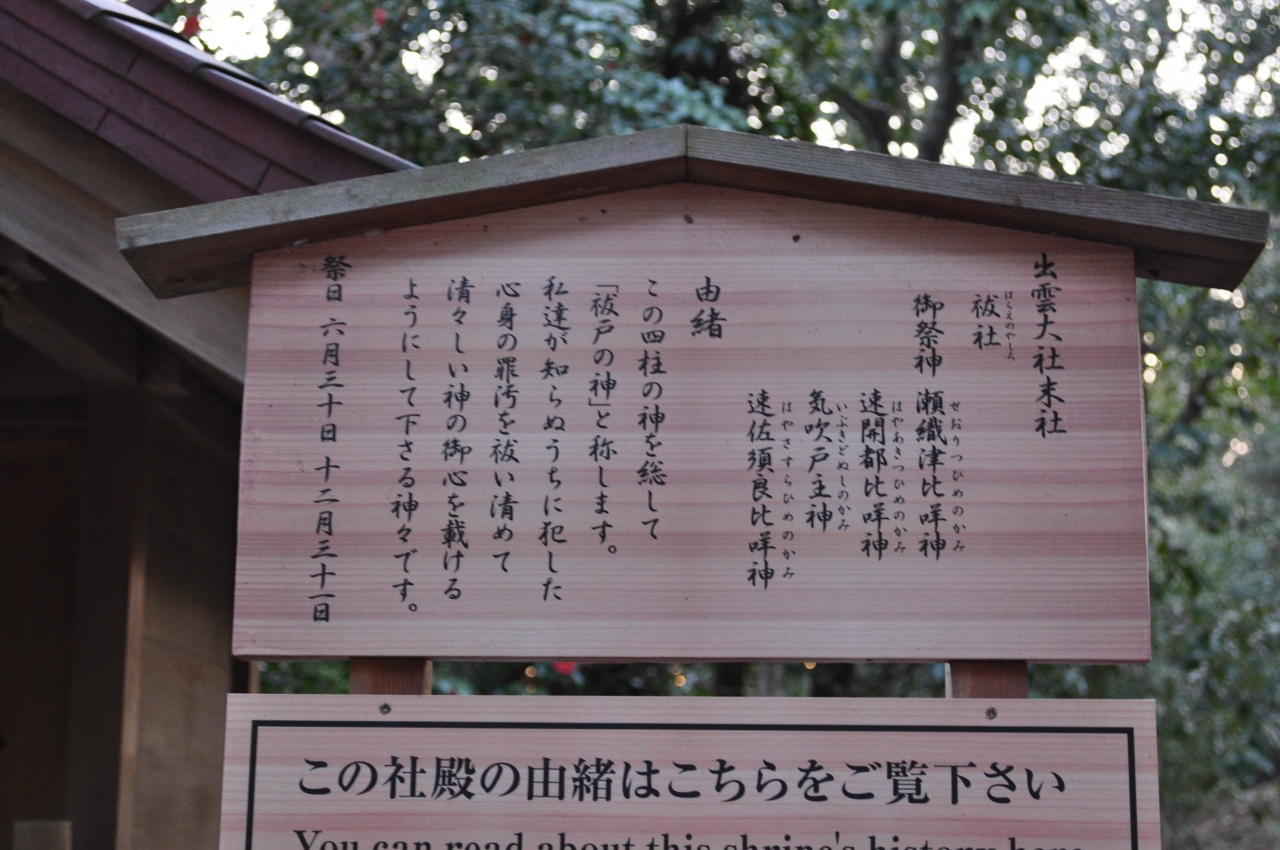 出雲大社末社
はらえのやしろ
祓社
御祭神 瀬織津比咩神
せおりつひめのかみ
速開都比咩神
はやあきつひめのかみ
気吹戸主神
いぶきどぬしのかみ
速佐須良比咩神
はやさすらひめのかみ
由緒
この四柱の神を総して
「祓戸の神」と称します。
私達が知らぬうちに犯した
心身の罪汚を祓い清めて
清々しい神の御心を載ける
ようにして下さる神々です。
祭日 六月三十日 十二月三十一日
この社殿の由緒はこちらをご覧下さい
You can read about this shrine's history here